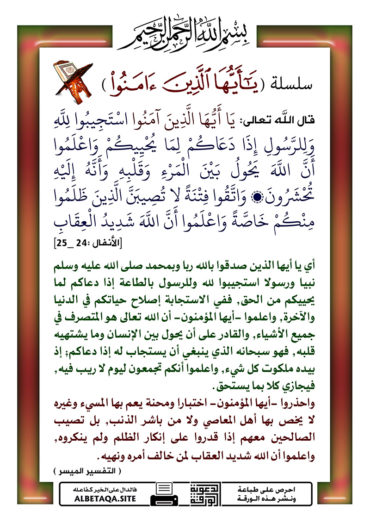 بِسْمِ اللَّهِ الرَّحْمَٰنِ الرَّحِيمِ
سلسلة (يَٰٓأَيُّهَا ٱلَّذِينَ ءَامَنُوا۟)
قال اللَّه تعالى: يَا أَيُّهَا الَّذِينَ آمَنُوا اسْتَجِيبُوا لِلَّهِ
وَلِلرَّسُولِ إِذَا دَعَاكُمْ لِمَا يُحْيِيكُمْ وَاعْلَمُوا
أَنَّ اللَّهَ يَحُولُ بَيْنَ الْمَرْءِ وَقَلْبِهِ وَأَنَّهُ إِلَيْهِ
تُحْشَرُونَ۞ وَاتَّقُوا فِتْنَةً لا تُصِيبَنَّ الَّذِينَ ظَلَمُوا
مِنْكُمْ خَاصَّةً وَاعْلَمُوا أَنَّ اللَّهَ شَدِيدُ الْعِقَابِ
[الأنفال :24 _25]
أي يا أيها الذين صدقوا بالله ربا وبمحمد صلى الله عليه وسلم
نبيا ورسولا استجيبوا لله وللرسول بالطاعة إذا دعاكم لما
يحييكم من الحق, ففي الاستجابة إصلاح حياتكم في الدنيا
والآخرة, واعلموا -أيها المؤمنون- أن الله تعالى هو المتصرف في
جميع الأشياء, والقادر على أن يحول بين الإنسان وما يشتهيه
قلبه, فهو سبحانه الذي ينبغي أن يستجاب له إذا دعاكم; إذ
بيده ملكوت كل شيء, واعلموا أنكم تجمعون ليوم لا ريب فيه,
فيجازي كلا بما يستحق.
واحذروا -أيها المؤمنون- اختبارا ومحنة يعم بها المسيء وغيره
لا يخص بها أهل المعاصي ولا من باشر الذنب, بل تصيب
الصالحين معهم إذا قدروا على إنكار الظلم ولم ينكروه,
واعلموا أن الله شديد العقاب لمن خالف أمره ونهيه.
( التفسير الميسر )
احرص على طباعة
ونشر هذه الورقة
الورقة الدعوية
فالدال على الخير كفاعله
ALBETAQA.SITE